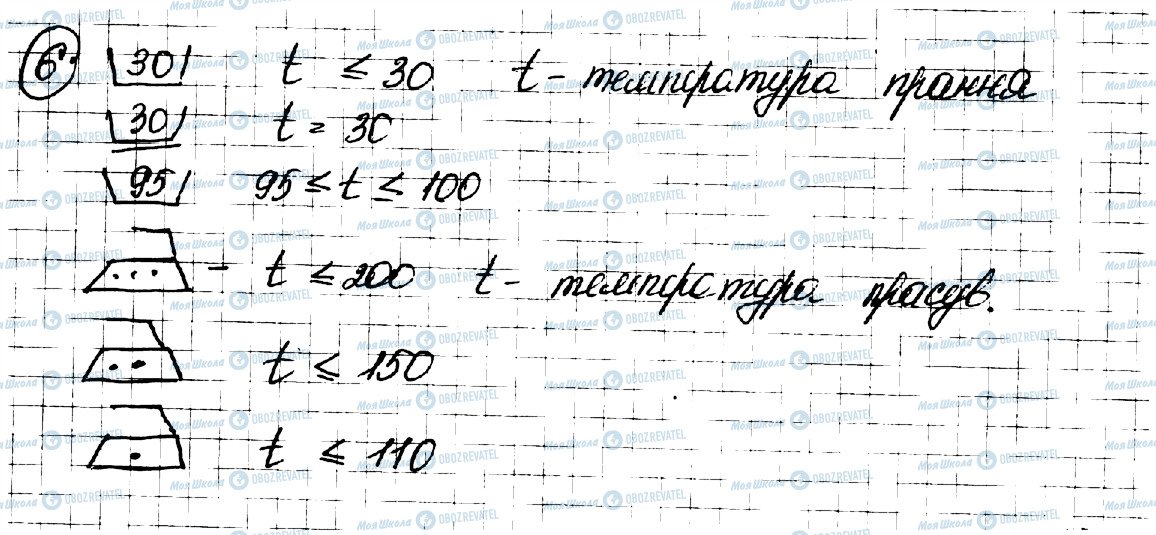 6. 30 t ≤ 30 t - температура прання
30 t = 30
95 95 ≤ t ≤ 100
- t ≤ 200 t - температура прасув.
t ≤ 150
t ≤ 110
МояШкола OBOZREVATEL